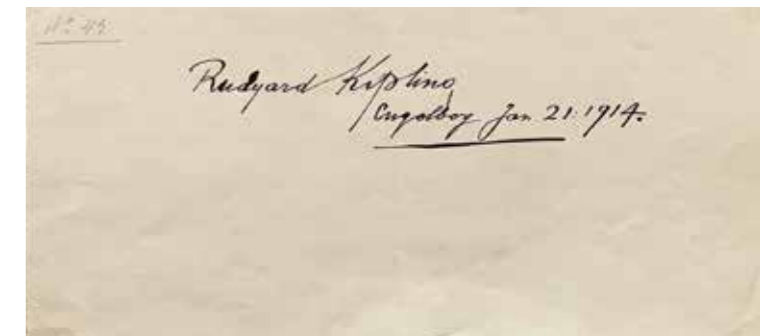 Nº 43.
Rudyard Kipling
Engelberg Jan 21. 1914.